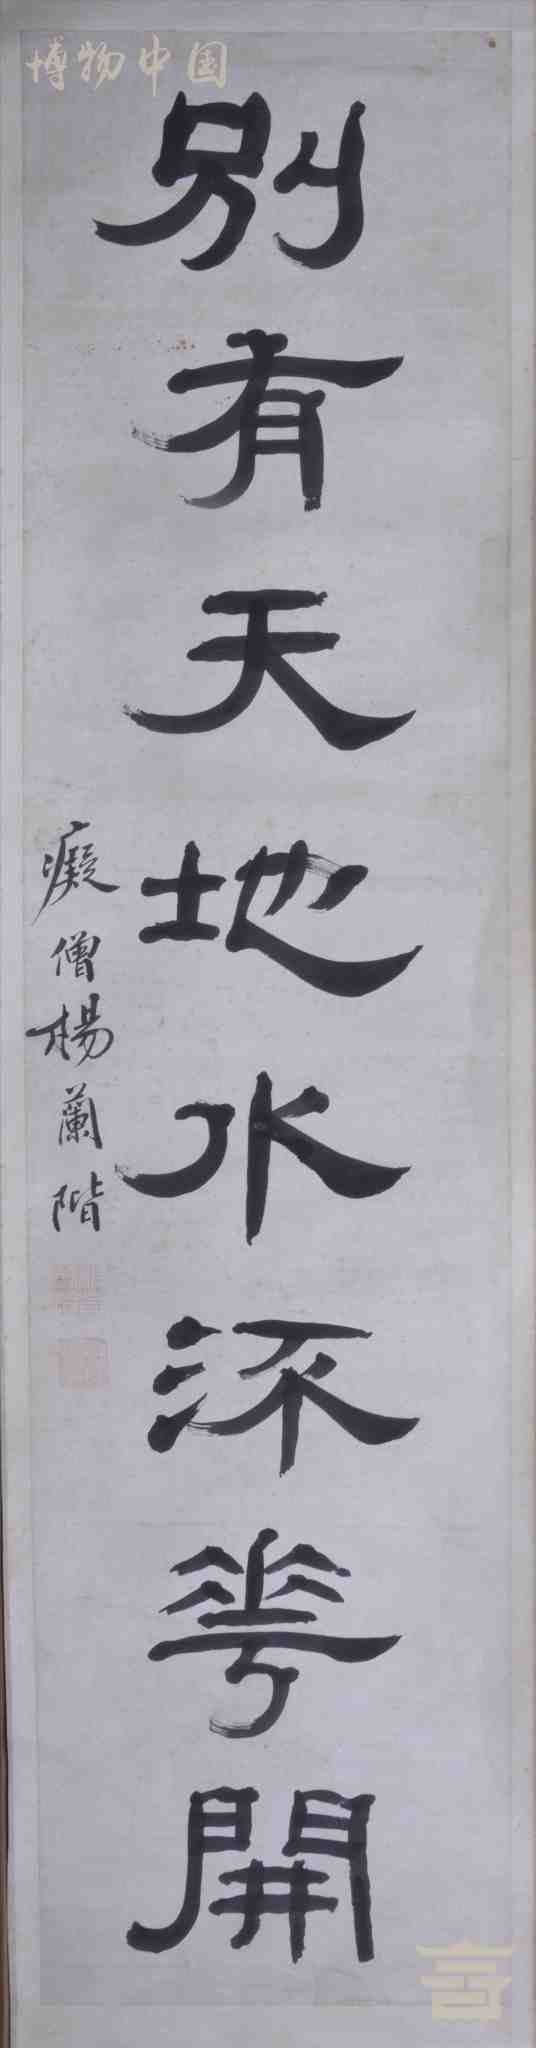 博物中国
別有天地水㳅華開
癡僧楊蘭階